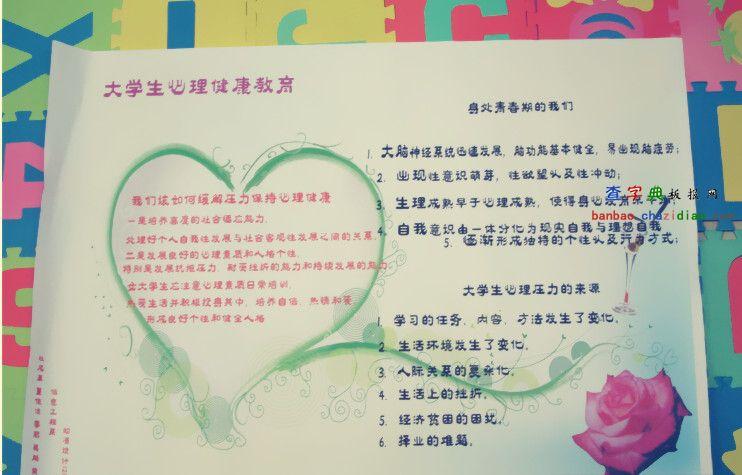 大学生心理健康教育
我们该如何缓解压力保持心理健康
一是培养高度的社会适应能力.
处理好个人自我性发展与社会客观性发展之间的关系.
二是发展良好的心理素质和人格个性.
特别是发展抗拒压力、耐受挫折的能力和持续发展的能力.
大学生应注意心理素质日常培训.
热爱生活并积极投身其中、培养自信、热情和爱.
形成良好个性和健全人格
身处青春期的我们
1. 大脑神经系统迅速发展, 脑功能基本健全, 易出现脑疲劳;
2. 出现性意识萌芽, 性欲望以及性冲动;
3. 生理成熟早于心理成熟, 使得身心发育
4. 自我意识由一体分化为现实自我与理想自我
5. 逐渐形成独特的个性以及行为方式;
查字典板报网
banbao.chazidian.com
大学生心理压力的来源
1. 学习的任务、内容、方法发生了变化.
2. 生活环境发生了变化.
3. 人际关系的复杂化.
4. 生活上的挫折.
5. 经济贫困的困扰.
6. 择业的难题.
信息工程系